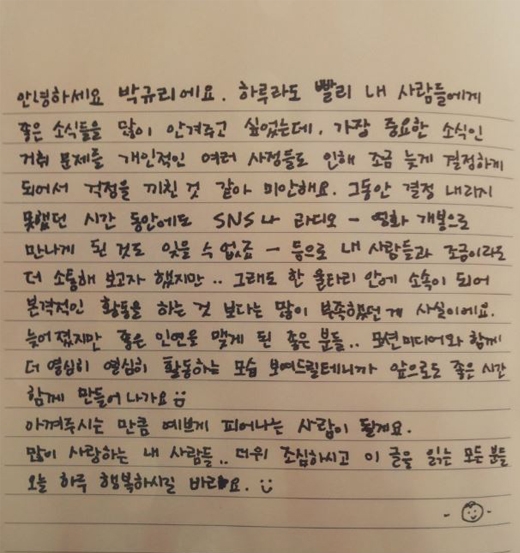 안녕하세요 박규리에요. 하루라도 빨리 내 사람들에게
좋은 소식들을 많이 안겨주고 싶었는데, 가장 중요한 소식인
거취 문제를 개인적인 여러 사정들로 인해 조금 늦게 결정하게
되어서 걱정을 끼친 것 같아 미안해요. 그동안 결정 내리지
못했던 시간 동안에도 SNS나 라디오 - 영화 개봉으로
만나게 된 것도 잊을 수 없죠 - 등으로 내 사람들과 조금이라도
더 소통해 보고자 했지만.. 그래도 한 울타리 안에 소속이 되어
본격적인 활동을 하는 것 보다는 많이 부족했던 게 사실이에요.
늦어졌지만 좋은 인연을 맺게 된 좋은 분들.. 모션미디어와 함께
더 열심히 열심히 활동하는 모습 보여드릴테니까 앞으로도 좋은 시간
함께 만들어 나가요
아껴주시는 만큼 예쁘게 피어나는 사람이 될게요.
많이 사랑하는 내 사람들.. 더위 조심하시고 이 글을 읽는 모든 분들
오늘 하루 행복하시길 바라요.